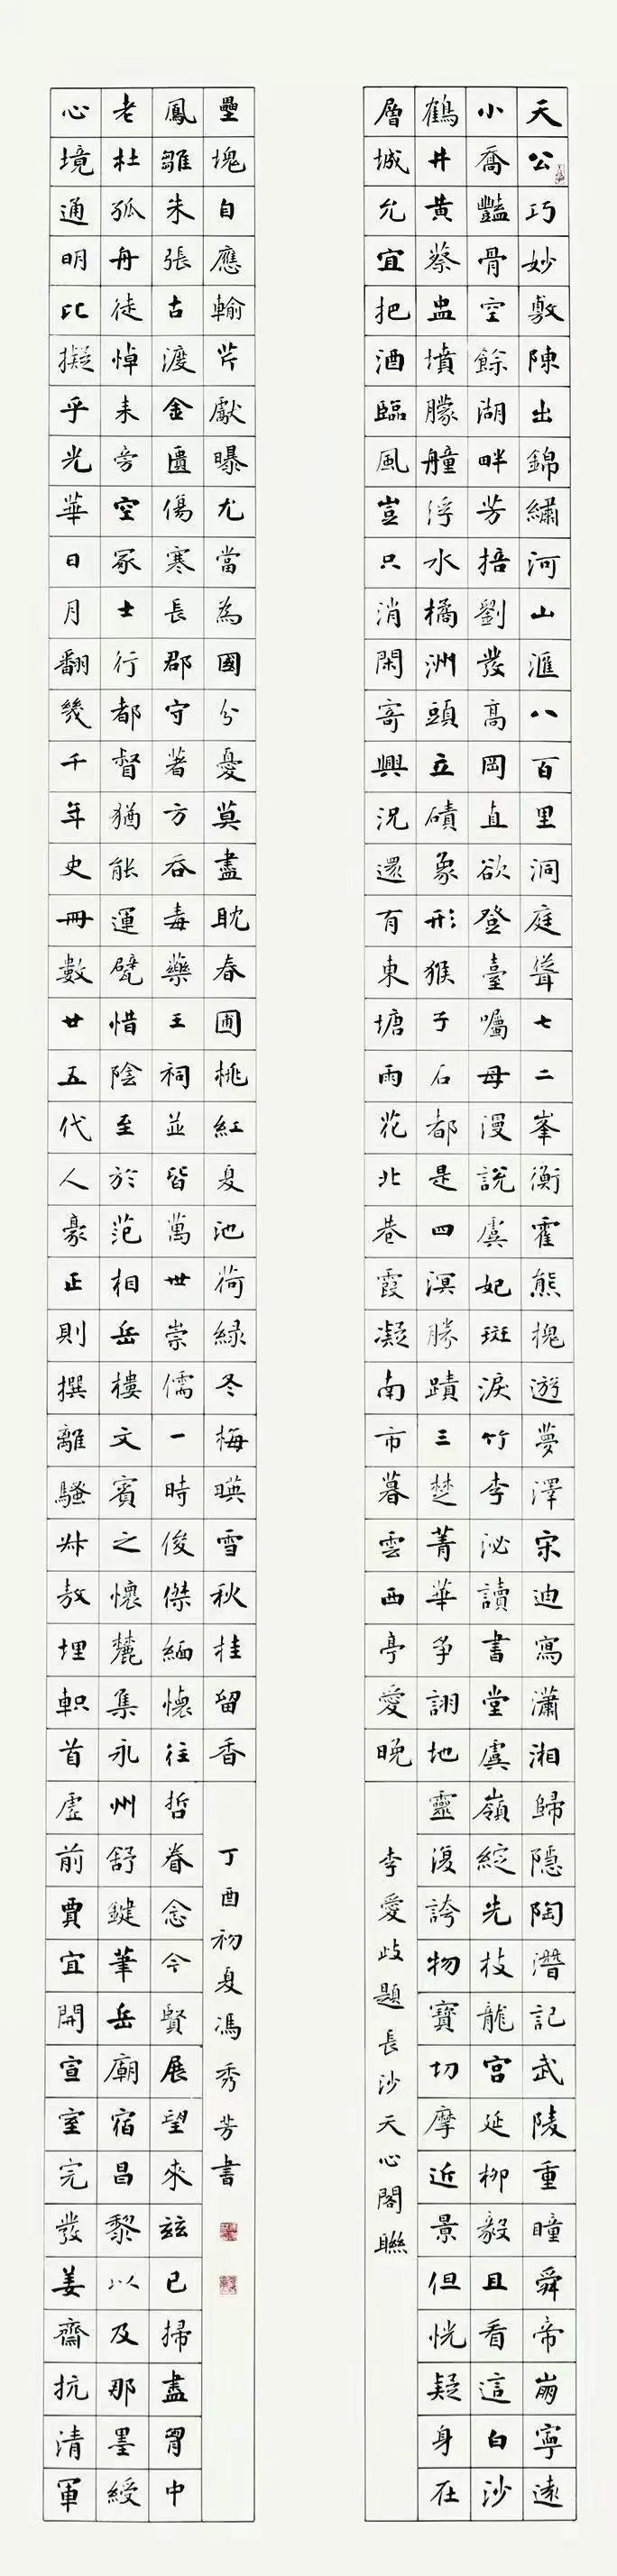 天公巧妙敷陳出錦繡河山滙八百里洞庭聳七二峯衡霍熊槐遊夢澤宋迪寫瀟湘歸隱陶潛記武陵重瞳舜帝崩寧遠
小喬豔骨空餘湖畔芳掊劉發高岡直欲登臺囑母漫說虞妃斑淚竹李泌讀書堂虞嶺綻先枝龍宮延柳毅且看這白沙
鶴井黄蔡蛊墳朦艟浮水橘洲頭立磧象形猴子石都是四溟勝蹟三楚菁華爭詡地靈復誇物寶切摩近景但恍疑身在
層城允宜把酒臨風豈只消閑寄興況還有東塘雨花北巷霞凝南市暮雲西亭愛晚
李愛歧題長沙天心閣聯
心境通明比擬乎光華日月翻幾千年史冊數廿五代人豪正則撰離騷叔敖埋軹首虛前賈宜開宣室完發姜齋抗清軍
老杜孤舟徒悼耒旁空冢士行都督猶能運甓惜陰至於范相岳樓文賓之懷麓集永州舒鍵筆岳廟宿昌黎以及那墨綬
鳳雛朱張古渡金匱傷寒長郡守著方吞毒藥王祠並皆萬世崇儒一時俊傑緬懷往哲眷念今賢展望來玆已掃盡胷中
壘塊自應輸芹獻曝尤當為國分憂莫盡耽春圃桃紅夏池荷緑冬梅暎雪秋桂留香
丁酉初夏馮秀芳書